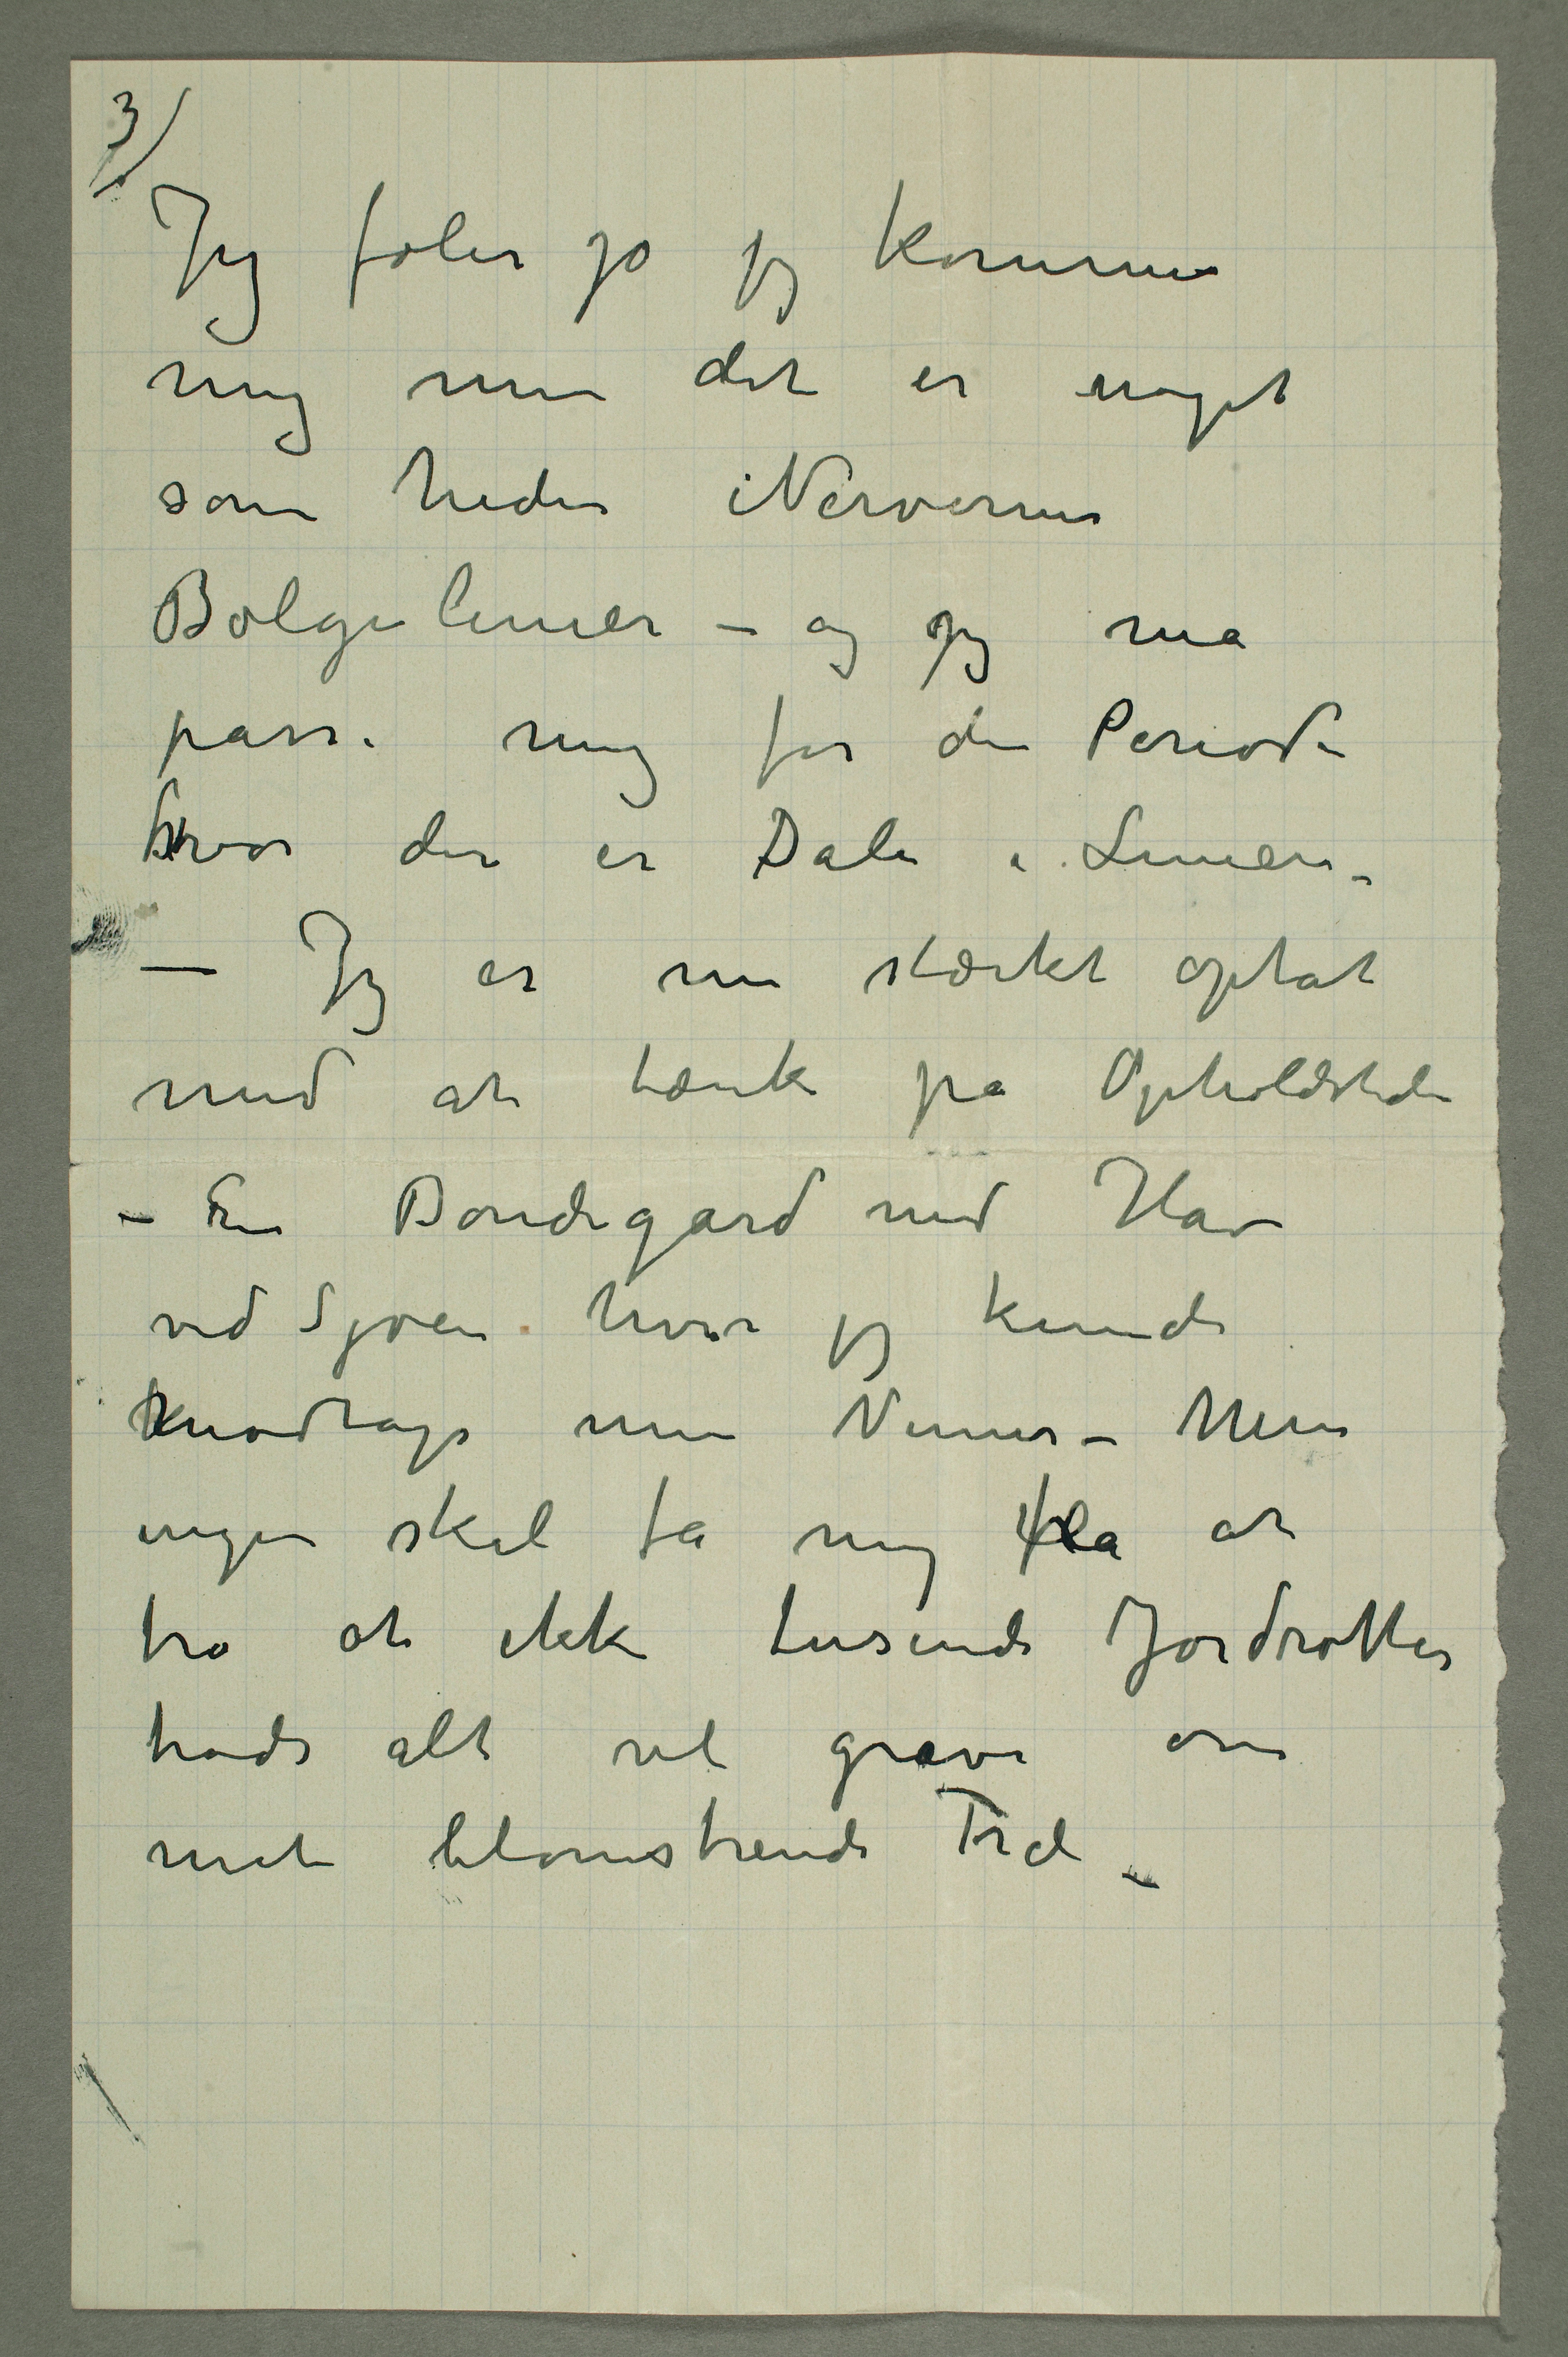 3/
Jeg føler jo jeg kommer
mig men det er noget
som heder Nervernes
Bølgelinier – og jeg må
passe mig for den Periode
hvor der er Dale i Linien –
— Jeg er nu stærkt optat
med at tænke på Opholdsteder
– En Bondegård med Have
ved Sjøen hvor jeg kunde
modtage mine Venner – Men
ingen skal få mig fla at
tro at ikke tusende Jordrotter
trods alt vil grave om
mit blomstrende Træ –